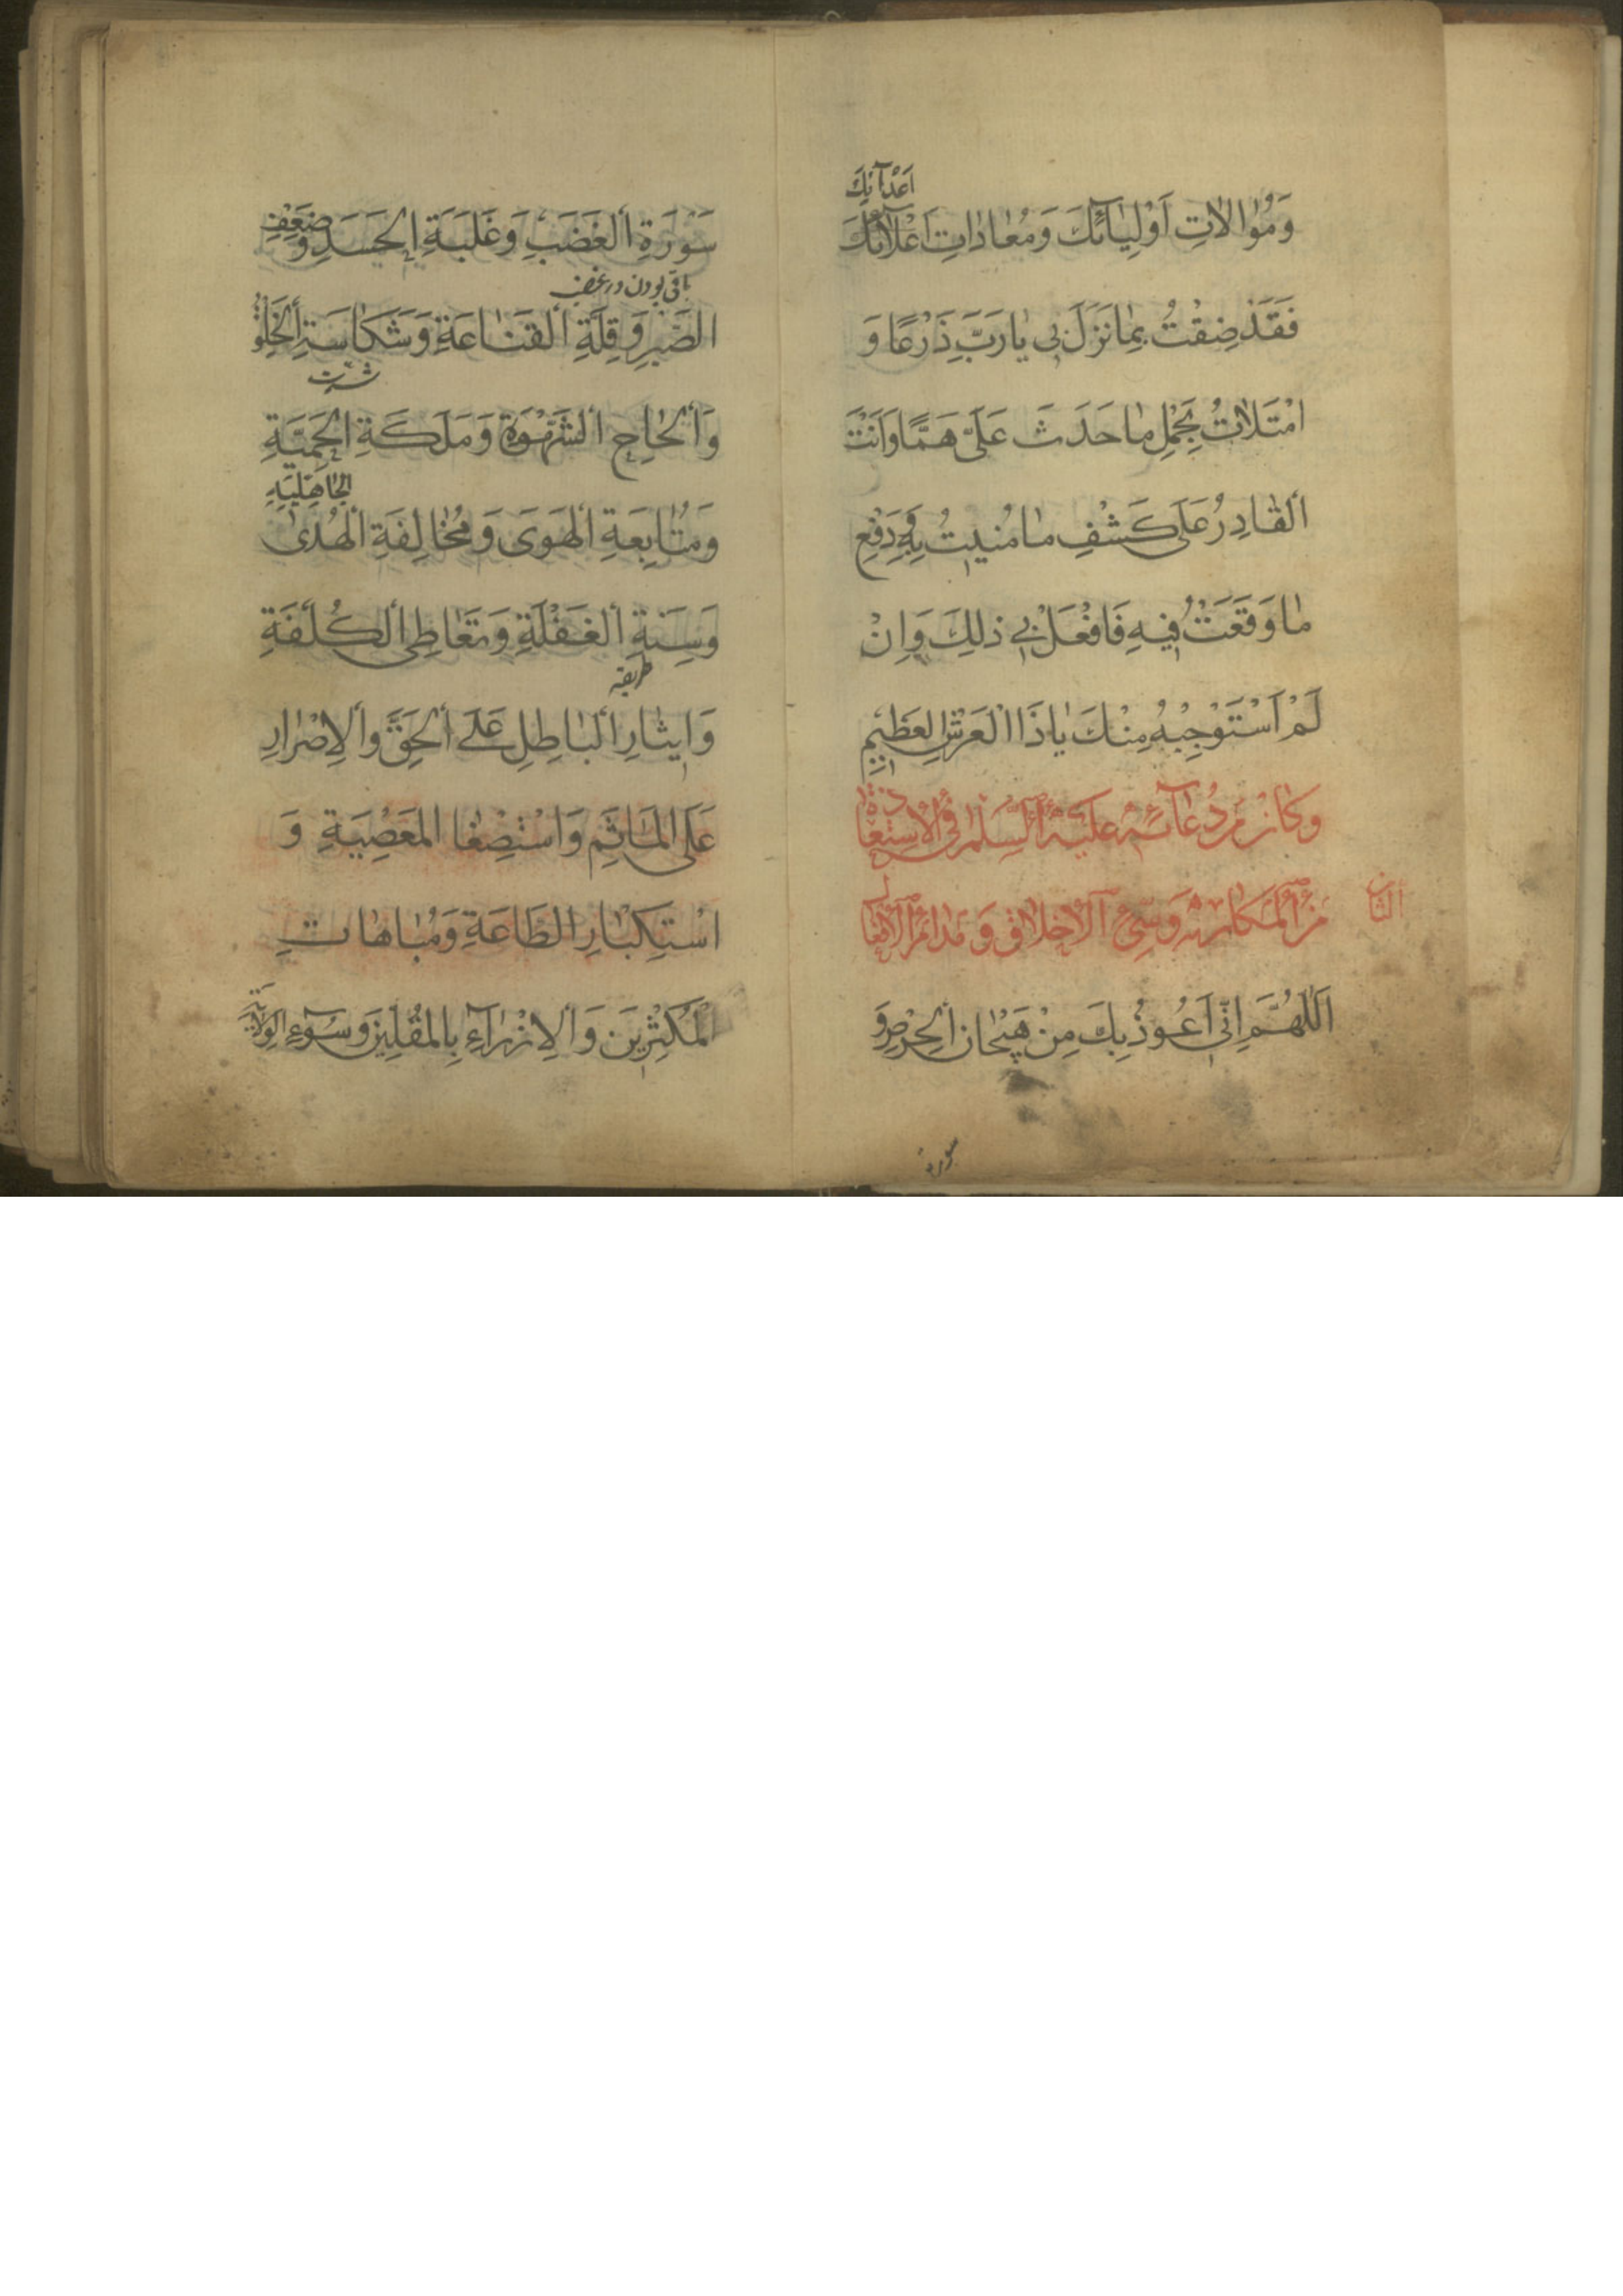 اَعْدآئِكَ
وَمُوٰالاٰتِ اَوْلِيٰآئِكَ وَمُعٰادٰاتِ اَعْدآئِكَ
فَقَدْ ضِقْتُ بِمٰا نَزَلَ بى يٰا رَبِّ ذَرْعًا وَ
امْتَلاٰتُ بِحَمْلِ مٰا حَدَثَ عَلَىَّ هَمًّا وَاَنْتَ
اَلْقٰادِرُ عَلىٰ كَشْفِ مٰا مُنيتُ بِهِ وَدَفْعِ
مٰا وَقَعَتُ فيهِ فَافْعَلْ بى ذٰلِكَ وَاِنْ
لَمْ اَسْتَوْجِبْهُ مِنْكَ يٰا ذَا الْعَرْشِ الْعَظيمِ
وكان من دُعآئه عليه السّلم فى الاستعاذة
من المكاره وسىّء الاخلاق و مذامّ الافعال
الثامن
اَللّٰهُمَّ اِنّى اَعُوذُ بِكَ مِنْ هَيَجٰانِ الْحِرْصِ وَ
سورة
سَوْرَةِ الغَضَبِ وَغَلَبَةِ الْحَسَدِ وَ ضَعْفِ
باقى بودن در غضب
الصَّبْرِ وَقِلَّةِ الْقَنٰاعَةِ وَشَكٰاسَةِ الْخَلْقِ
وَاَلْحٰاحِ الشَّهْوَةِ وَمَلَكَةِ الحَمِيَّةِ
الجٰاهِلِيَّةِ
وَمُتٰابِعَةِ الْهَوىٰ وَمُخٰالِفَةِ الْهُدىٰ
وَسِنَةِ الْغَفْلَةِ وَتَعٰاطِى الْكُلْفَةِ
طريقه
وَايثٰارِ الْبٰاطِلِ عَلَى الْحَقِّ وَالْاِصْرٰارِ
عَلَى المَاٰثِمِ وَاسْتِصْغٰا المَعْصِيَةِ وَ
اسْتِكْبٰارِ الطّٰاعَةِ وَمُبٰاهٰاتِ
الْمُكْثِرينَ وَالْاِزْرٰآءِ بِالْمُقِلّينَ وَسُوٓءِ الوِلاٰيَةِ